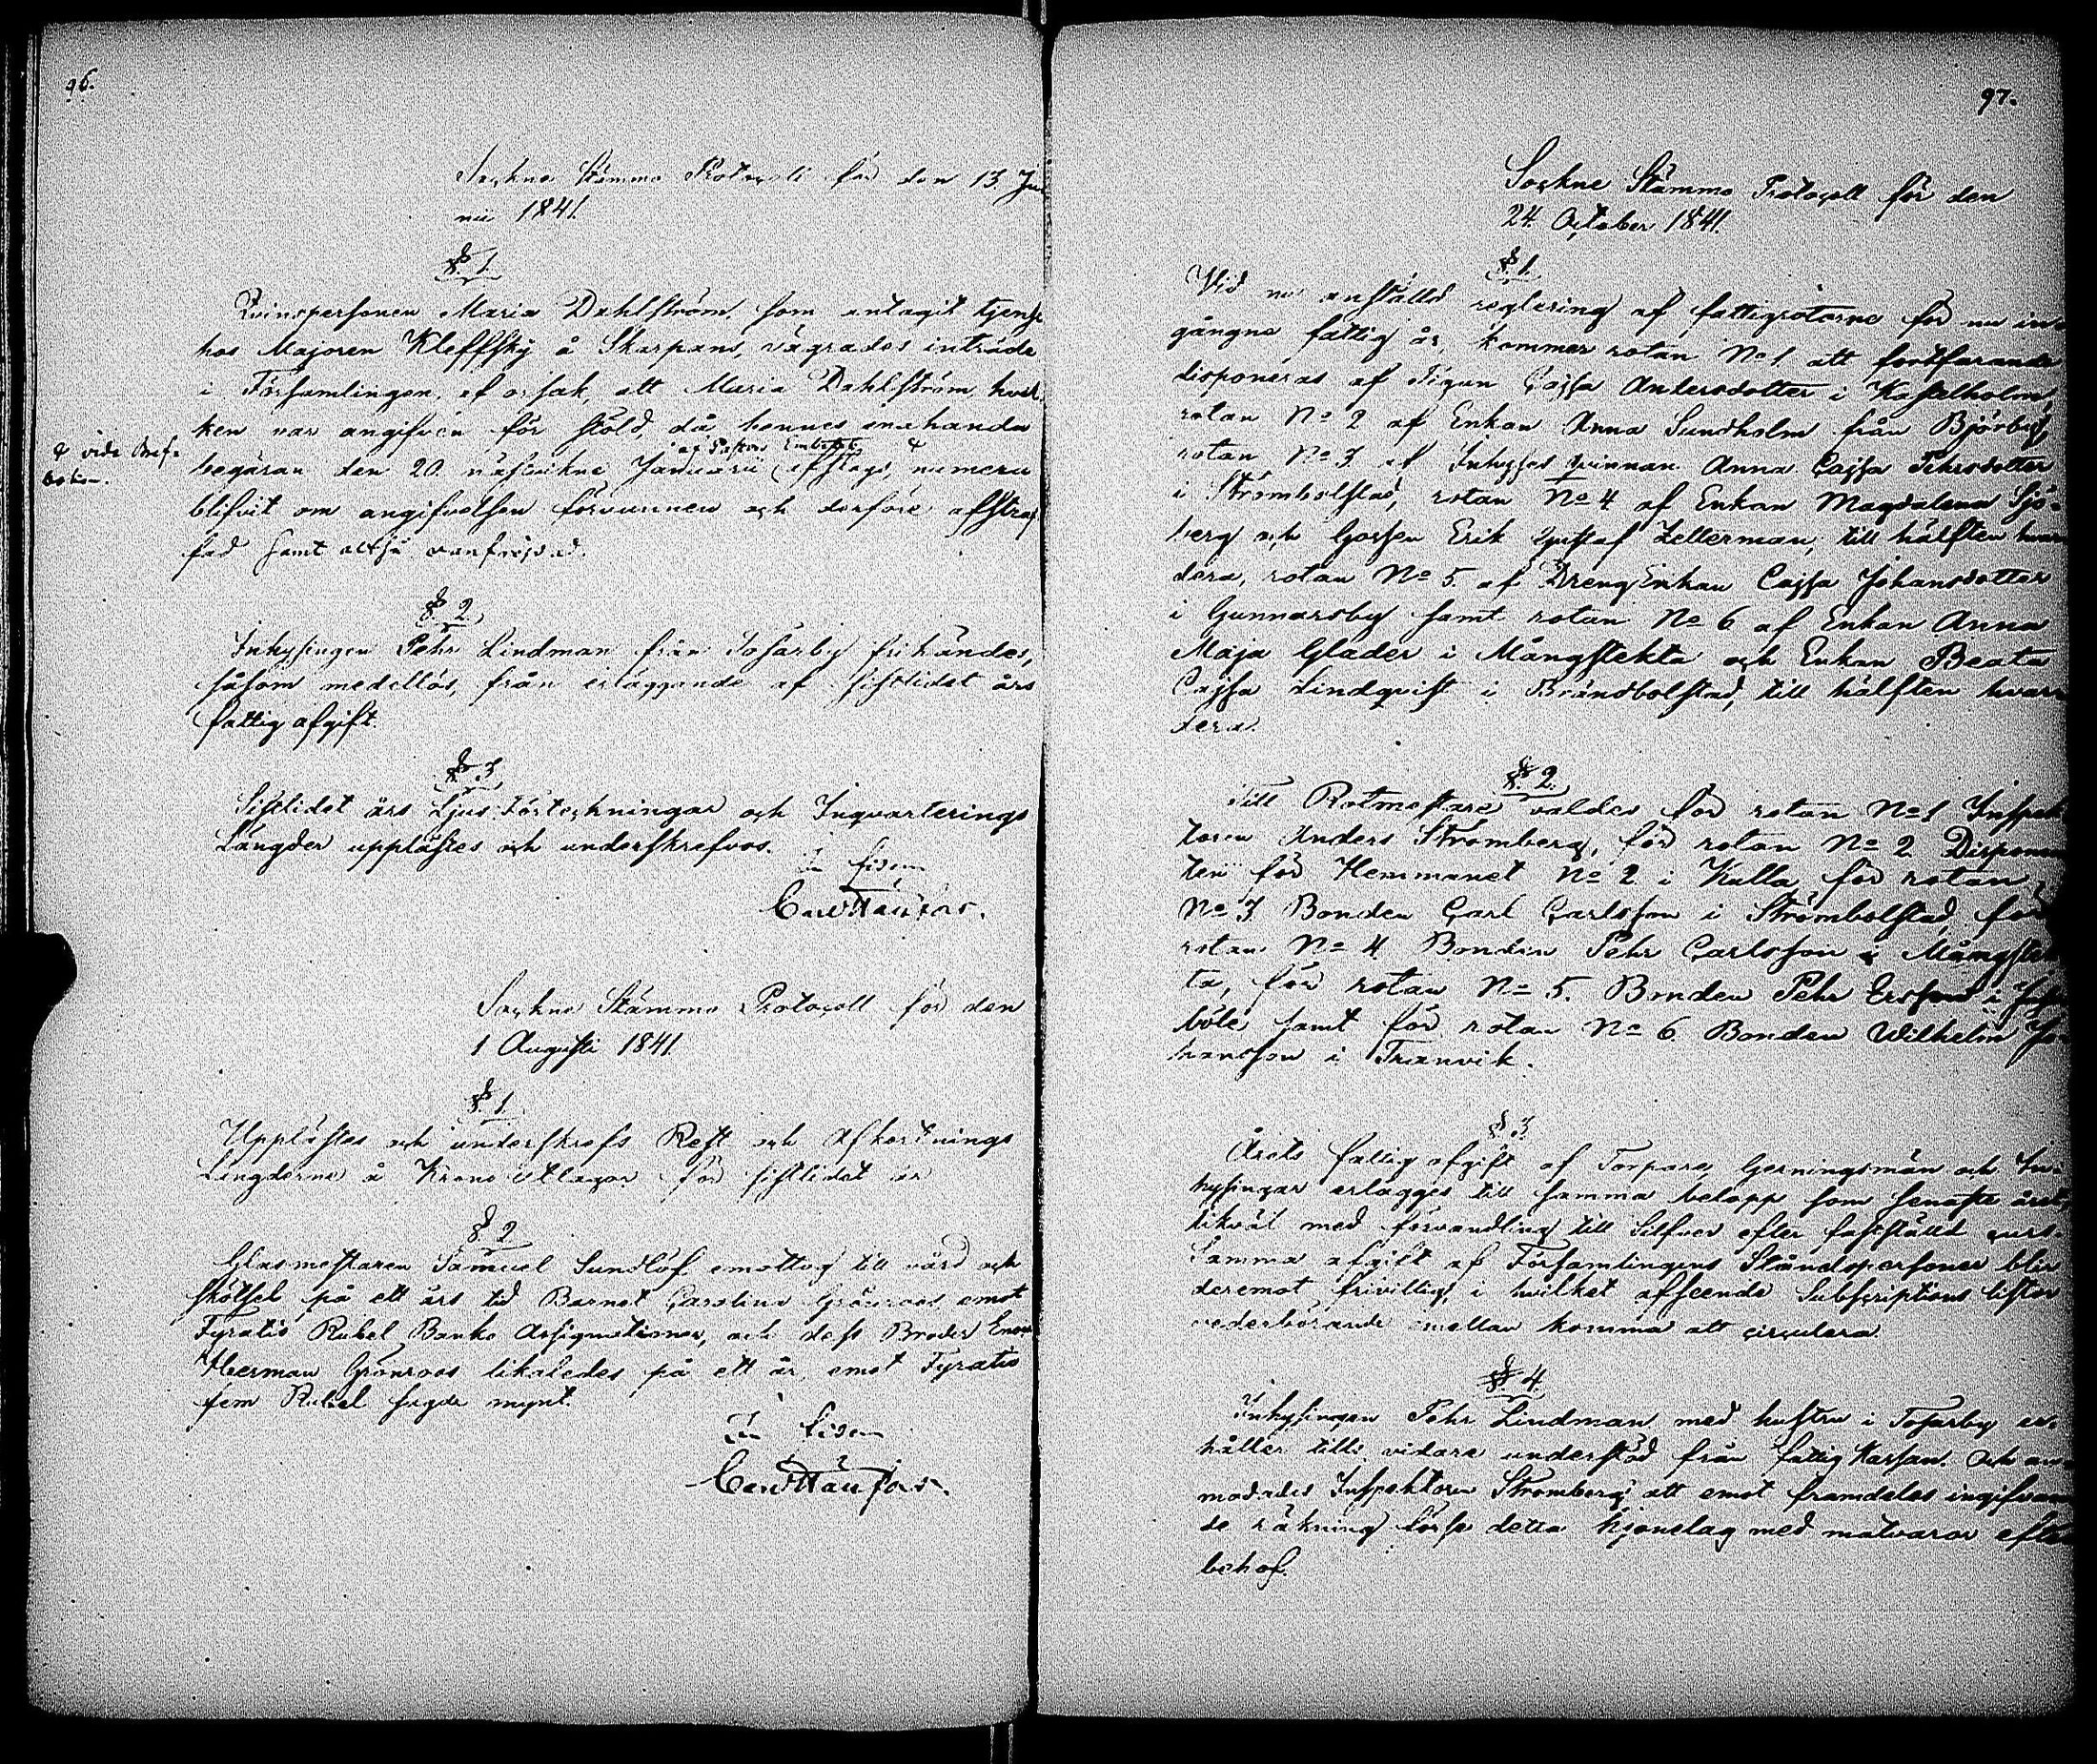 96.
Sockne Stämmo Protocoll för den 13. Ju
nii 1841.
§. 1.
Qvinspersonen Maria Dahlström, som antagit tjenst
hos Majoren Kleffsky å Skarpans, vägrades inträde
i Församlingen, af orsak, att Maria Dahlström, hvil-
ken var angifven för stöld, då hennes enahanda
af Pastors Embetet
begäran den 20 nästvikne Januarii afslogs, # numera
# vide Bref-
boken.
blifvit om angifvelsen förvunnen och derföre afstraf-
fad samt altså vanfrejdad.
§. 2.
Inhysingen Pehr Lindman från Tosarby frikändes,
såsom medellös, från erläggande af sistlidet års
fattig afgift.
§. 3.
Sistlidet års Ljus Förteckningar och Inqvarterings
Längder upplästes och underskrefvos.
In fidem
Carl
Sockne Stämmo Protocoll för den
1 Augusti 1841.
§. 1.
Upplästes och underskrefs Rest och Afkortnings
Längderne å Krono Utlagor för sistlidet år
§. 2.
Glasmestaren Samuel Sundlöf emottog till vård och
skötsel på ett års tid Barnet Carolina Grönroos emot
Fyratio Rubel Banko Assignationer, och dess Broder
Herman Grönroos likaledes på ett år, emot Fyratio
fem Rubel sagde mynt.
In fidem
Carl
97.
Sockne Stämmo Protocoll för den
24. October 1841.
§. 1.
Vid nu anställd reglering af fattigrotarne för nu in-
gångne fattig år, kommer rotan No 1. att fortfarande
disponeras af Pigan Cajsa Andersdotter i Kastelholm,
rotan No 2 af Enkan Anna Sundholm från Björby,
rotan No 3 af Inhyses qvinnan Anna Cajsa Pehrsdotter
i Strömbolstad, rotan No 4 af Enkan Magdalena Sjö-
berg och Gossen Erik Gustaf Zetterman, till hälften hvar
dera, rotan No 5 af DrengEnkan Cajsa Johansdotter
i Gunnarsby samt rotan No 6 af Enkan Anna
Maja Glader i Mångstekta och Enkan Beata
Cajsa Lindqvist i Brändbolstad, till hälften hvar
dera.
§. 2.
Till Rotmestare valdes för rotan No 1 Inspek
toren Anders Strömberg, för rotan No 2 Disponen
ten för Hemmanet No 2 i Kulla, för rotan
No 3 Bonden Carl Carlsson i Strömbolstad, för
rotan No 4 Bonden Pehr Carlsson i Mångstek
ta, för rotan No 5. Bonden Pehr Ersson i
böle samt för rotan No 6. Bonden Wilhelm Jo-
hansson i Tranvik.
§. 3
Årets fattig afgift af Torpare, Gerningsmän och In-
hysingar erlägges till samma belopp som senaste året,
likväl med förvandling till Silfver efter fastställd curs.
Samma afgift af Församlingens Ståndspersoner blir
deremot frivillig, i hvilket afseende Subscriptions listor
vederbörande emellan komma att circulera.
§. 4.
Inhysingen Pehr Lindman med hustru i Tosarby er-
håller tills vidare understöd från fattig Kassan. Och an-
modades Inspektoren Strömberg att emot framdeles ingifvan
de räkning förse detta hjonelag med matvaror efter
behof.